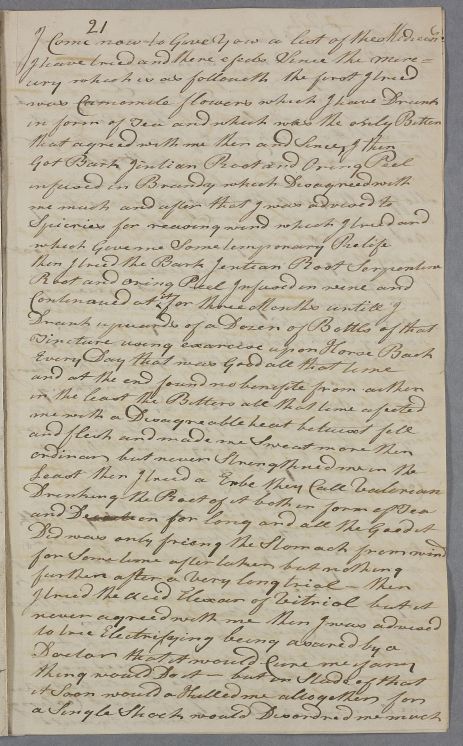 21
I Come now to Give You a list of the Medicin
I have tried and there efects Since the merc=
ury which is as followeth the first I tried
was Camomile flowers which I have Drunk
in form of Tea and which was the only Bitter
that agreed with me then and Since I then
Got Bark Jintian Root and Oring Peel
infused in Brandy which Disagreed with
me much and after that I was advised to
Spiceries for reasing wind which I tried and
which Gave me Some temporary Relife
then I tried the Bark Jentian Root Serpentine
Root and oring Peel Infused in wine and
Continued at it for three Months untill I
Drank upwards of a Dozen of Bottls of that
Tincture using exarcise upon Horse Back
Every Day that was Good all that time
and at the end found no benifite from aither
in the least the Bitters all that time afected
me with a Disagreeable heat betwixt fell
and flesh and made me Sweat more then
ordinary but never Strengthned me in the
Least then I tried a Erbe they Call Valerian
Drinking the Root of it both in form of Tea
and for long and all the Good it
Did was only friing the Stomach from wind
for Some time after taken but nothing
further after a very long trial - then
I tried the acid Elexar of Vitrial but it
never agreed with me then I was advised
to trie Electrifying being asured by a
Doctor that it would Cure me if any
thing would Do it - but in Stade of that
it Soon would a killed me altogether for
a Single Shock would Disordred me much